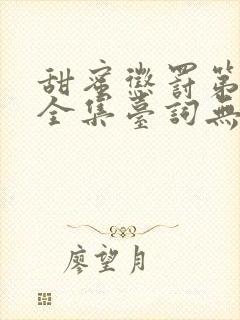 甜蜜懲罰第
全集臺詞無
廖望月